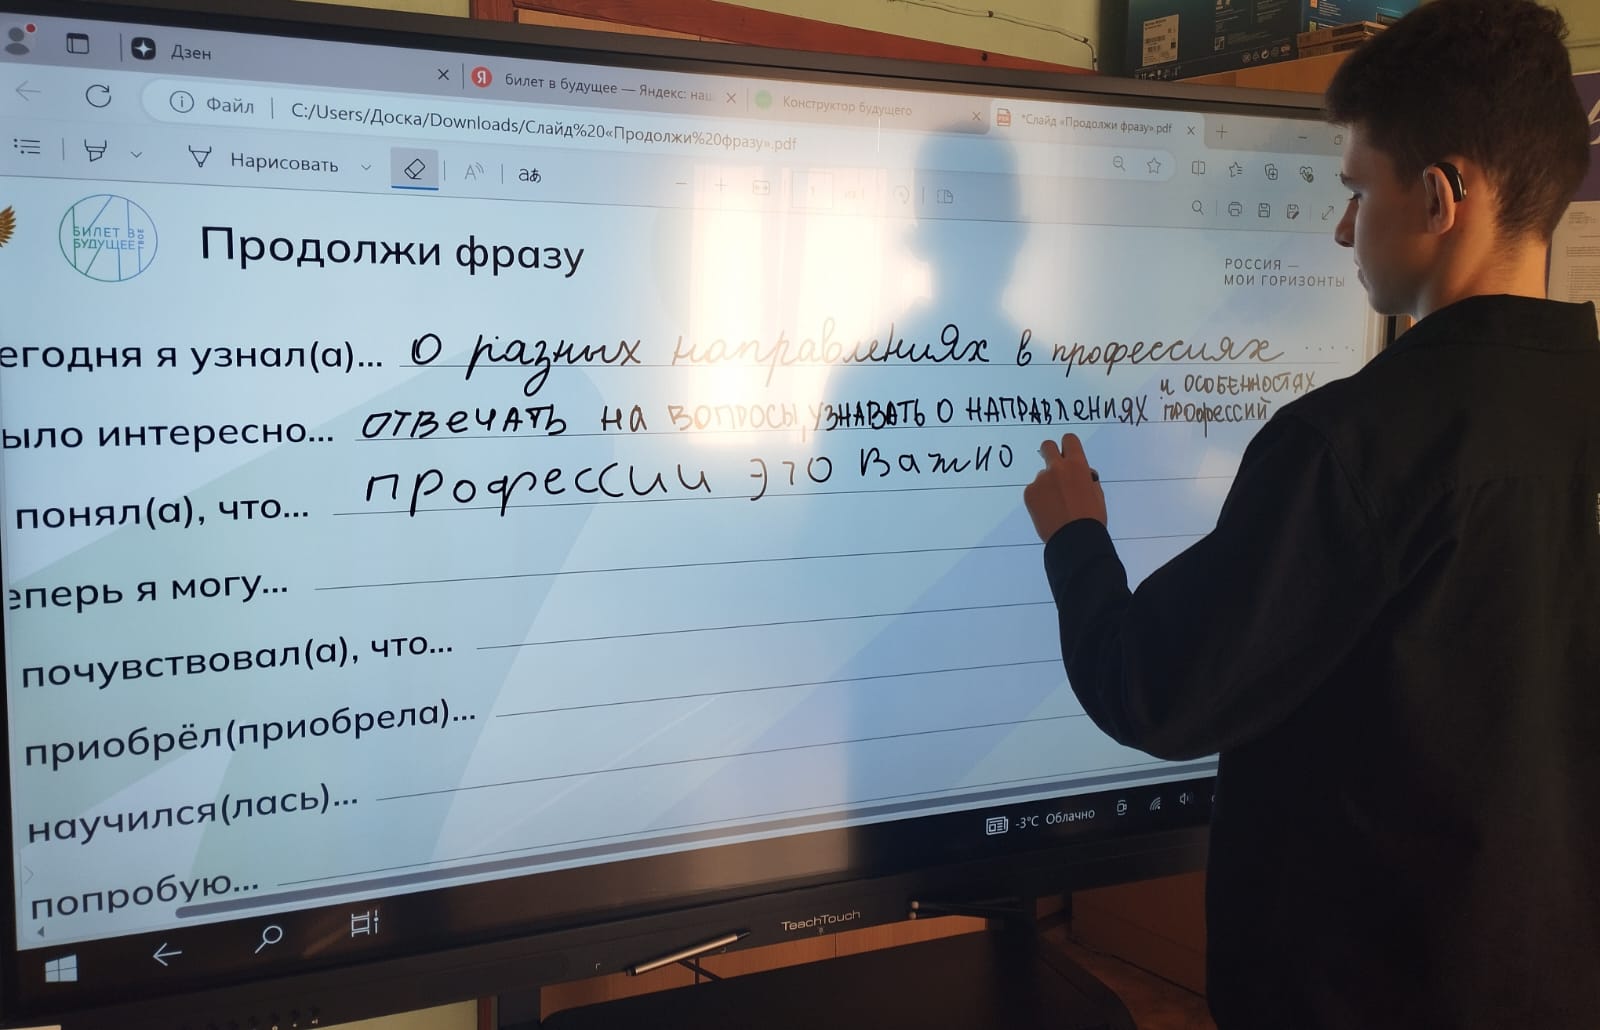 Дзен
билет в будущее — Яндекс: наш
Конструктор будущего
*Слайд «Продолжи фразу».pdf
Файл
C:/Users/Доска/Downloads/Слайд%20«Продолжи%20фразу».pdf
Нарисовать
аあ
БИЛЕТ В БУДУЩЕЕ
Продолжи фразу
РОССИЯ —
МОИ ГОРИЗОНТЫ
егодня я узнал(а)... о разных направлениях в профессиях
и особенностях
ыло интересно... отвечать на вопросы, узнавать о направлениях профессий
понял(а), что... профессии это важно
еперь я могу...
почувствовал(а), что...
приобрёл(приобрела)...
научился(лась)...
попробую...
-3°C Облачно
TeachTouch